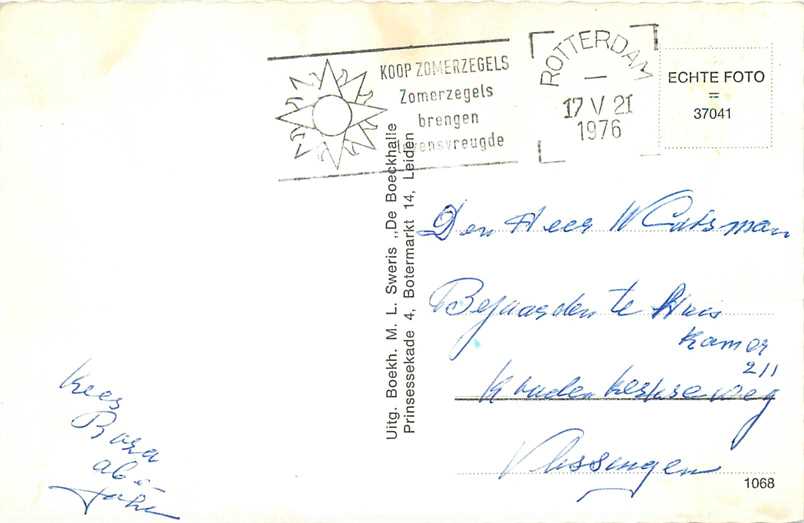 KOOP ZOMERZEGELS
Zomerzegels
brengen
levensvreugde
ROTTERDAM
17 V 21
1976
ECHTE FOTO
=
37041
Uitg. Boekh. M. L. Sweris ,,De Boeckhalle
Prinsessekade 4, Botermarkt 14, Leiden
Den Heer W Cats man
Bejaarden te Huis
Kamer
211
Koudekerkseweg
Vlissingen
Kees
1068